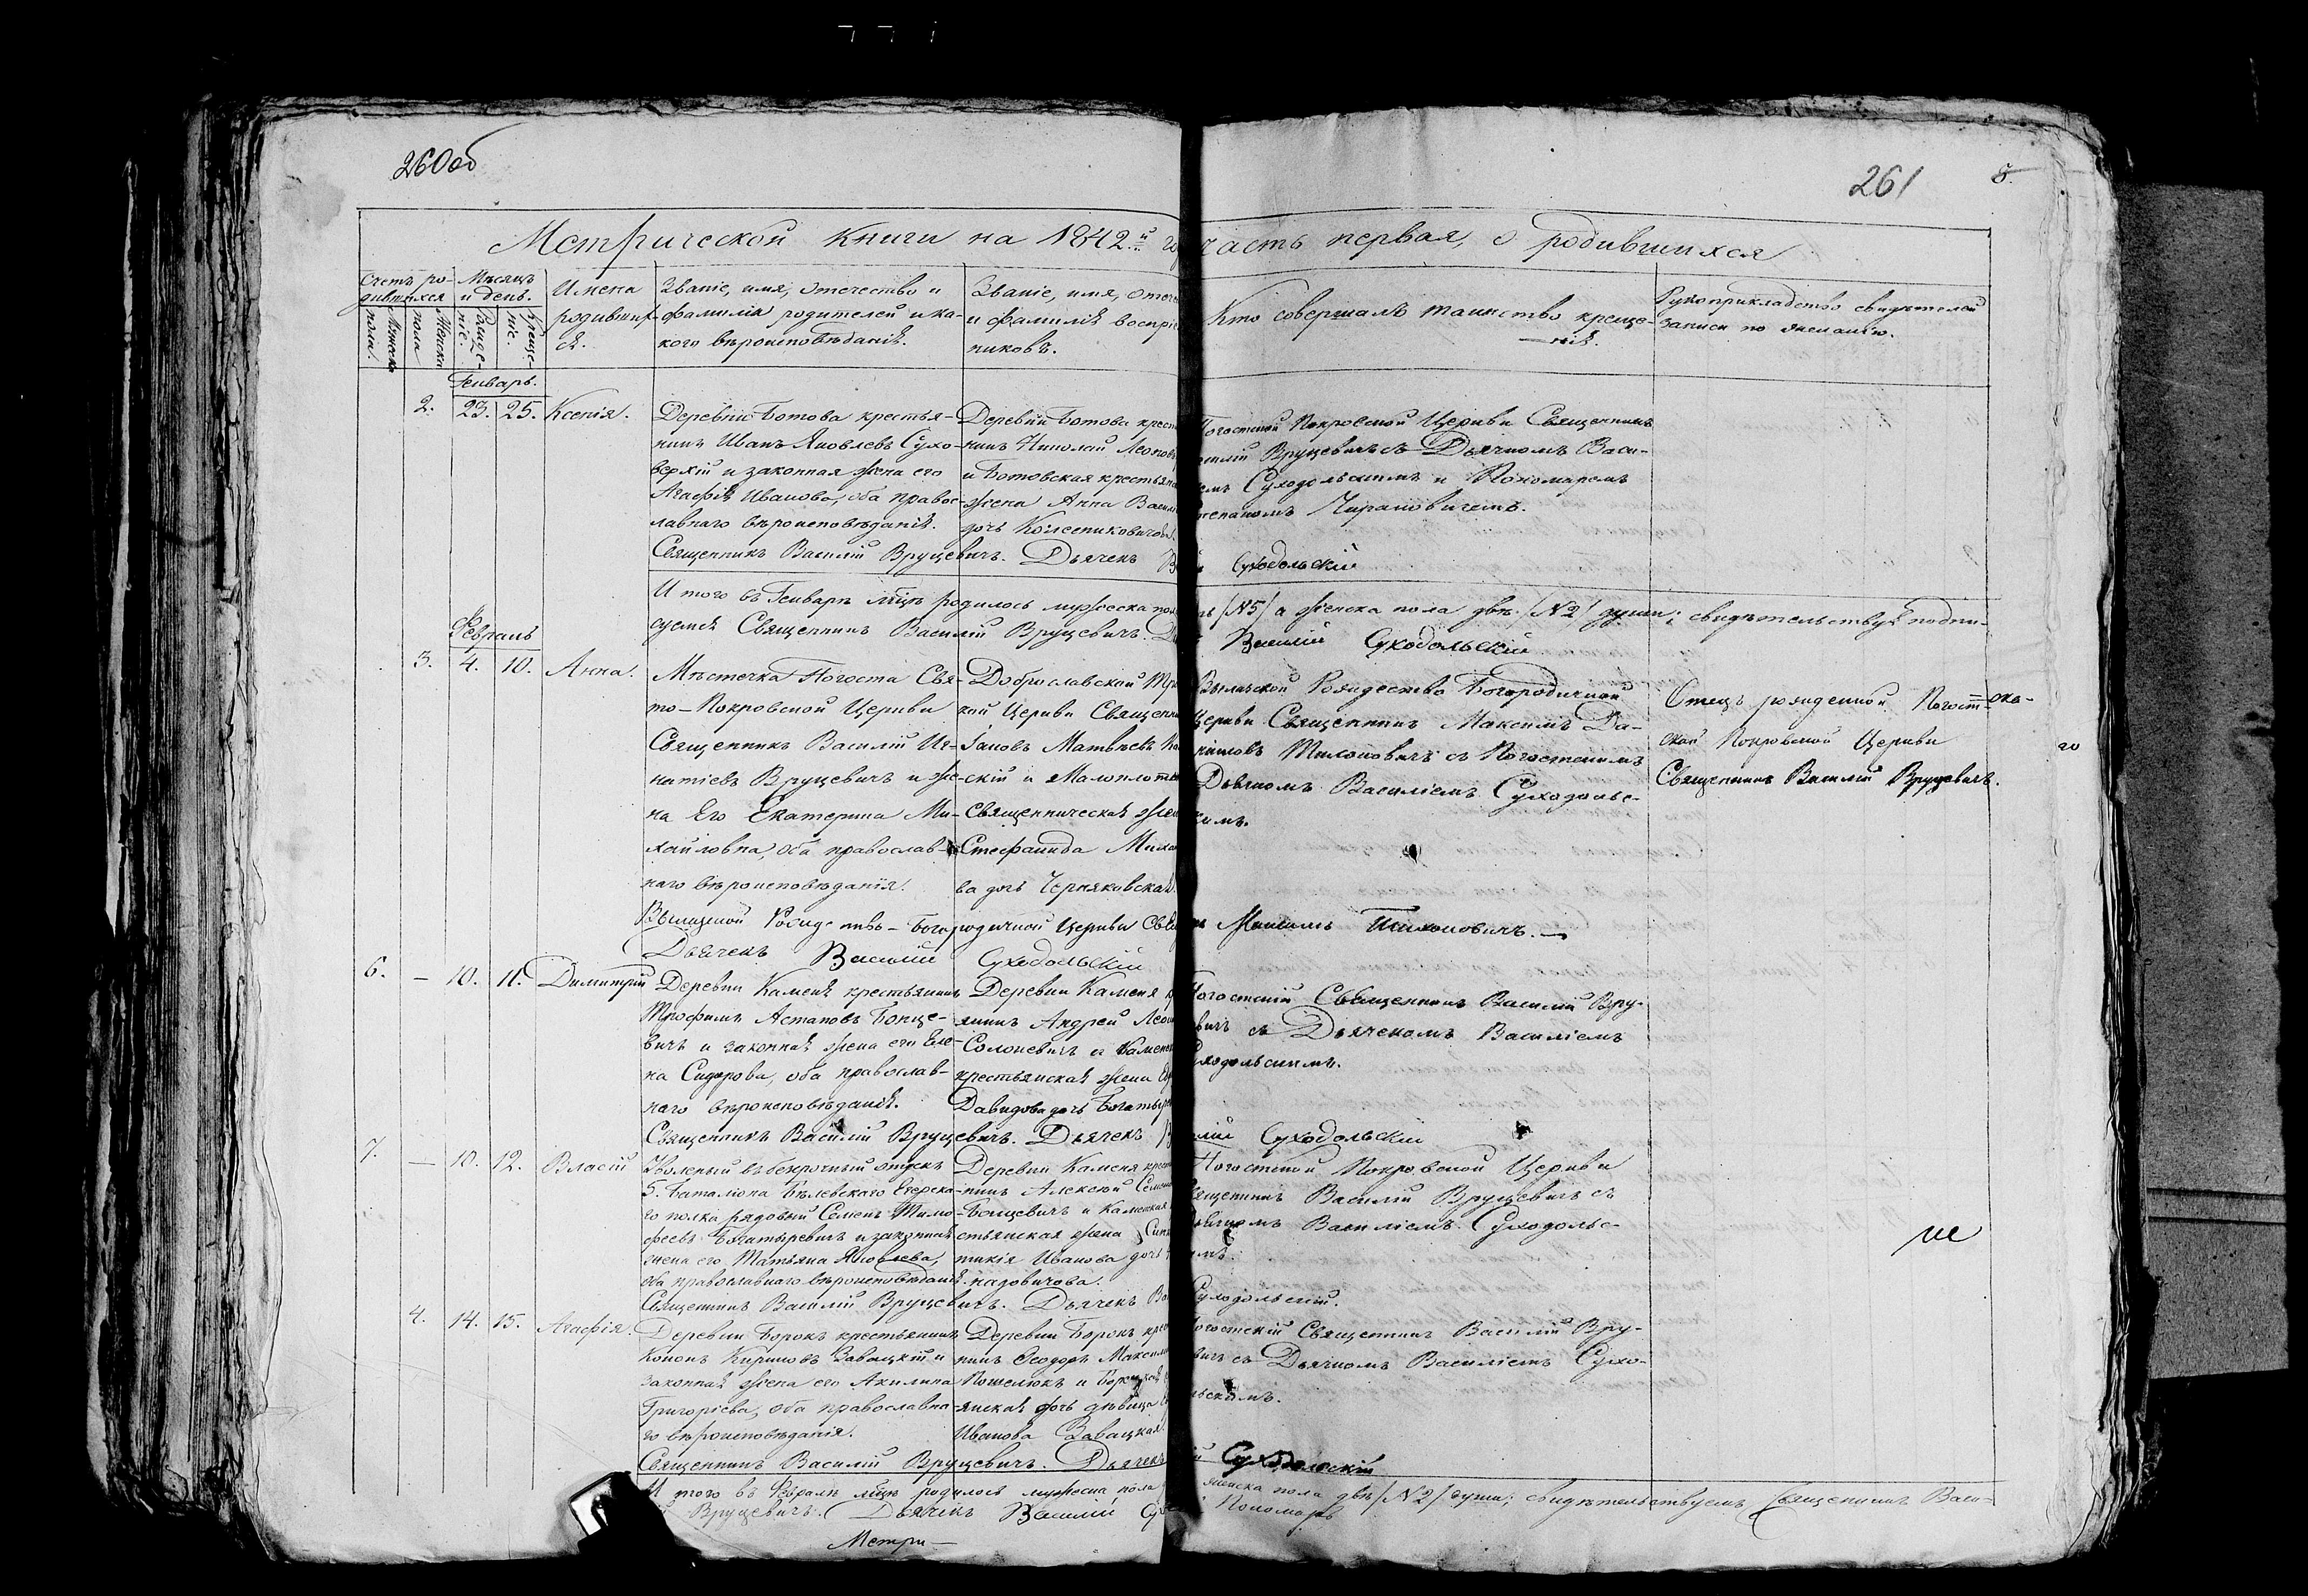 260об
261
8.
Метрической книги на 1842й го
часть первая, о родившихся
Счетъ ро-
дившихся
Мужеска
пола.
Женска
пола
Мѣсяцъ
и день.
Рожде-
ніе.
Креще-
ніе.
Имена
родивших-
ся.
Званіе, имя, отечество и
фамилія родителей и ка-
кого вѣроисповѣданія.
Званіе, имя, отече
и фамилія воспріе
никовъ.
Кто совершалъ таинство креще-
нія.
Рукоприкладство свидѣтелей
записи по желанію.
Генварь.
2. 23. 25. Ксенія.
Деревни Ботова крестья-
нинъ Иванъ Яковлевъ Сухо-
верхій и законная жена его
Агафія Иванова, оба правос-
лавнаго вѣроисповѣданія.
Деревни Ботова крест
нинъ Николай Леонов
и Ботовская крестьян
жена Анна Васил
дочь Колесниковичова.
Погостской Покровской Церкви Священникъ
силій Вруцевичъ съ Дьячкомъ Васи-
емъ Суходольскимъ и Пономаремъ
тепаномъ
Священникъ Василій Вруцевичъ. Дьячекъ В
й Суходольскій
И того въ Генварѣ мцѣ родилось мужеска пол
ть /N5/ а женска пола двѣ /N2/ души; свидѣтельствуя подпи-
суемся Священникъ Василій Вруцевичъ. Д
Василій Суходольскій
Февраль
3. 4. 10. Анна.
Мѣстечка Погоста Свя-
то-Покровской Церкви
Священникъ Василій Иг-
натіевъ Вруцевичъ и же-
на Его Екатерина Ми-
хайловна, оба православ-
наго вѣроисповѣданія.
Доброславской Тро
кой Церкви Священни
Іаковъ Матвѣевъ Ко
скій и Малоплотн
Священническая жен
Стефанида Миха
ва дочь Черняковская.
Вылазской Рождество Богородичной
Церкви Священникъ Максимъ Да-
ніиловъ Тихоновичъ съ Погостскимъ
Дьячкомъ Василіемъ Суходольс-
кимъ.
Отецъ рожденной Погост-
ской Покровской Церкви
Священникъ Василій Вруцевичъ.
го
Вылазской Рождество-Богородичной Церкви Свящ
къ Максимъ Тихоновичъ.
Дьячекъ Василій Суходольскій
6. — 10. 11. Димитрій
Деревни Каменя крестьянинъ
Трофимъ Астаповъ Бонце-
вичъ и законная жена его Еле-
на Сидорова, оба православ-
наго вѣроисповѣданія.
Деревни Каменя к
янинъ Андрей Леон
Солоневичъ и Камен
крестьянская жена
Давидова дочь Богатыре
Погостскій Священникъ Василій Вру-
евичъ съ Дьячекомъ Василіемъ
Суходольскимъ.
Священникъ Василій Вруцевичъ. Дьячекъ В
илій Суходольскій
7. — 10. 12. Власій
Уволенный въ безсрочный отпускъ
5. Баталіона Бѣлевскаго Егерска-
го полка рядовый Семенъ Тимо-
феевъ Богатыревичъ и законная
жена его Татьяна Яковлева,
оба православнаго вѣроисповѣданія.
Деревни Каменя крест
нинъ Алексѣй Семено
Бонцевичъ и Каменская
стьянская жена Син
тикія Иванова дочь
надовичова.
Погостской Покровской Церкви
Священникъ Василій Вруцевичъ съ
Дьячкомъ Василіемъ Суходольс-
имъ.
не
Священникъ Василій Вруцевичъ. Дьячекъ Ва
Суходольскій.
4. 14. 15. Агафія.
Деревни Борокъ крестьянинъ
Кононъ Кириковъ Завацкій и
законная жена его Акилина
Григоріева, оба православна-
го вѣроисповѣданія.
Деревни Борокъ крес
нинъ Ѳеодоръ Максимо
Пошелюкъ и Борецкая
янская дочь дѣвица
Иванова Завацкая.
Погостскій Священникъ Василій Вру-
евичъ съ Дьячкомъ Василіемъ Сухо-
льскимъ.
Священникъ Василій Вруцевичъ. Дьячекъ
й Суходольскій
И того въ Февралѣ мцѣ родилось мужеска пола
женска пола двѣ /N2/ души; свидѣтельствуемъ Священникъ Васи-
й Вруцевичъ. Дьячекъ Василій Сух
Пономарь
Метри-